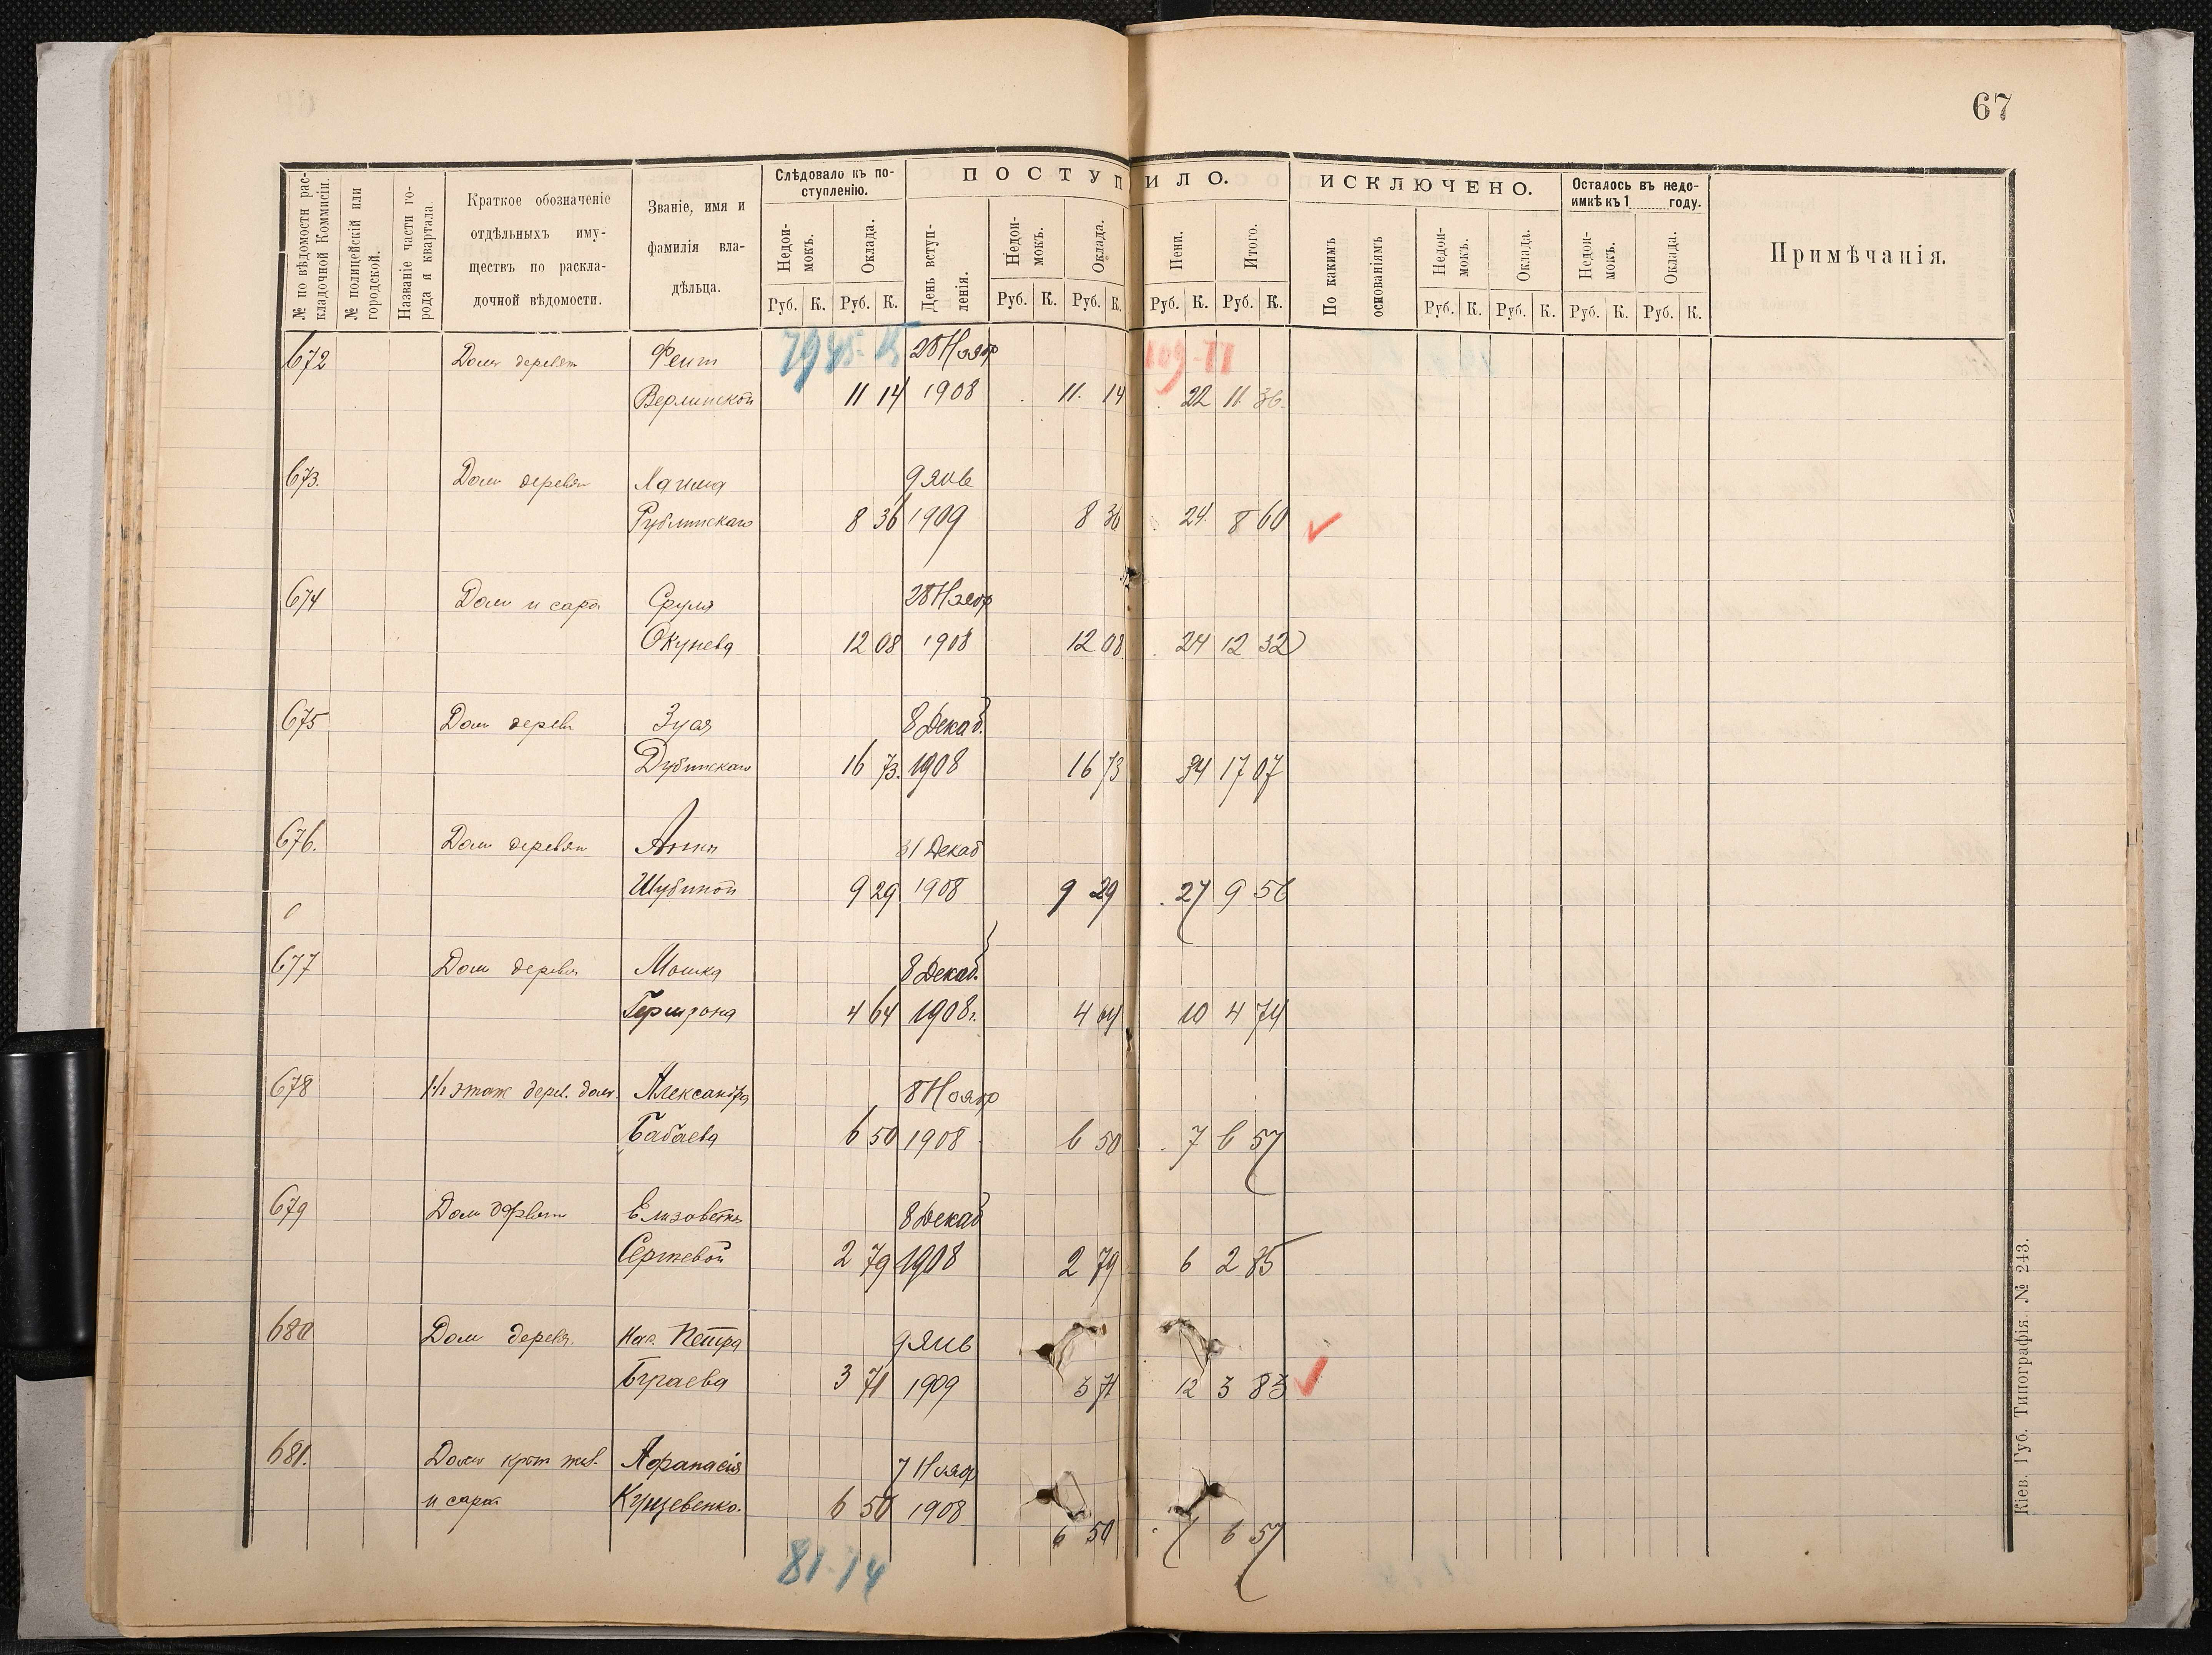 67
№ по вѣдомости рас-
кладочной Коммисіи.
№ полицейскій или
городской.
Названіе части го-
рода и квартала
Краткое обозначеніе
отдѣльныхъ иму-
ществъ по раскла-
дочной вѣдомости.
Званіе, имя и
фамилія вла-
дѣльца.
Слѣдовало къ по-
ступленію.
Недои-
мокъ.
Оклада.
Руб. К. Руб. К.
ПОСТУПИЛО.
День вступ-
ленія.
Недои-
мокъ.
Оклада.
Пени.
Итого.
Руб. К. Руб. К. Руб. К. Руб. К.
ИСКЛЮЧЕНО.
По какимъ
основаніямъ
Недои-
мокъ.
Оклада.
Руб. К. Руб. К.
Осталось въ недо-
имкѣ къ 1 году.
Недои-
мокъ.
Оклада.
Руб. К. Руб. К.
Примѣчанія.
7945-15 109-11
672 Домъ деревян 28 Нояр
Верлинской 11 14 1908 11. 14 22 11. 36.
673. Дом деревян 9 янв
Рублинскаго 8 36 1909 8 36 24. 8 60
674 Дом и сара Сруля 28 Нояр
Окунева 12 08 1908 12 08 24 12 32
675 Дом дерев 8 Декаб.
Дубинскаго 16 73. 1908 16 73 34 17 07
676. Дом деревян Анны 31 Декаб
Шубиной 9 29 1908 9 29 27 9 56
677 Дом деревя Мошка 8 Декаб.
4 64 1908 г. 4 64 10 4 74
678 1½ этаж дерев. дом. Александра 8 Нояр
Бабаева 6 50 1908 6 50 7 6 57
679 Дом Елизоветы 8 Декаб
Сергевой 2 79 1908 2 79 6 2 85
680 Дом деревя. Нас. Петра 9 янв
3 71 1909 3 71 12 3 83
681. Домъ Афанасія 7 Нояр
и сарай Кущевенко. 6 50 1908
6 50 7 6 57
81-14
Кіев. Губ. Типографія. № 243.